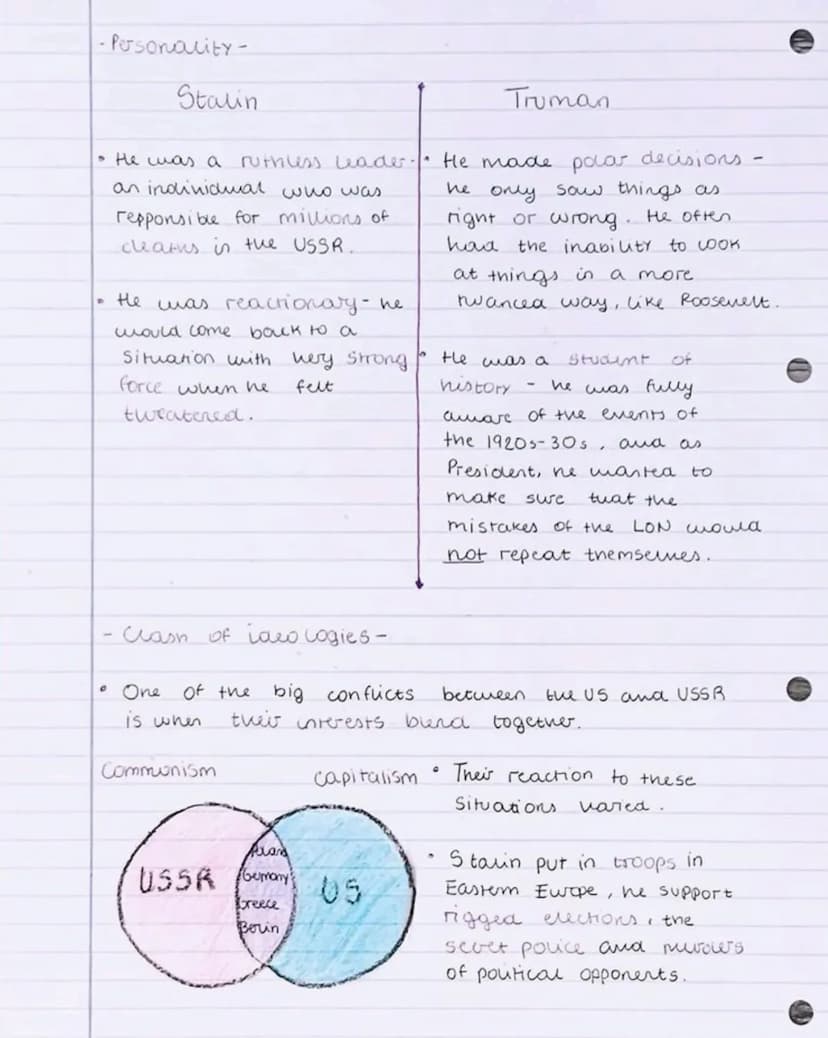 - Personality -
Stalin
• He was a ruthless leader -
an individual who was
responsible for millions of
deaths in the USSR.
• He was reactionary - he
would come back to a
situation with very strong
force when he felt
threatened.
Truman
• He made polar decisions -
he only saw things as
right or wrong. He often
had the inability to look
at things in a more
nuanced way, like Roosevelt.
• He was a student of
history - he was fully
aware of the events of
the 1920s-30s, and as
President, he wanted to
make sure that the
mistakes of the LON would
not repeat themselves.
- Clash of ideologies -
• One of the big conflicts between the US and USSR
is when their interests blend together.
Communism
Capitalism
USSR
Poland
Germany
Greece
Berlin
US
• Their reaction to these
situations varied.
• Stalin put in troops in
Eastern Europe, he support
rigged elections, the
secret police and murders
of political opponents.